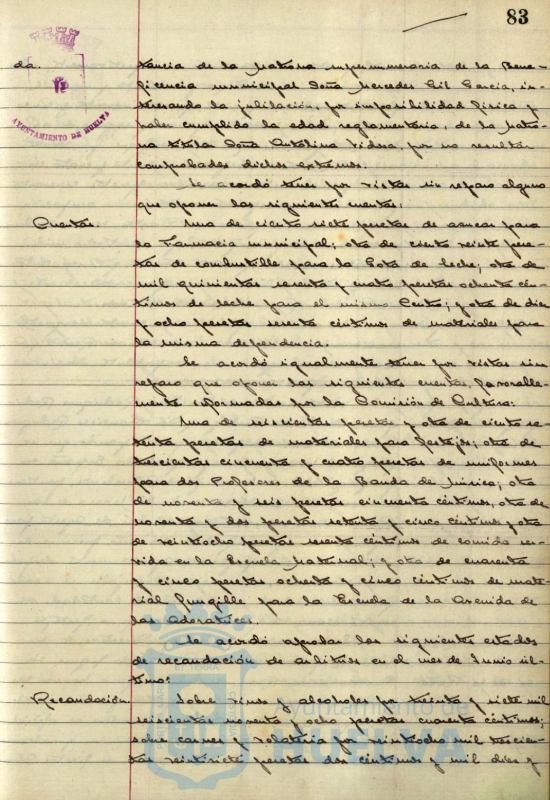 83
AYUNTAMIENTO DE HUELVA
da.
tancia de la Matrona supernumeraria de la Bene-
ficencia municipal Doña Mercedes Gil García, in-
teresando la jubilación, por imposibilidad física y
haber cumplido la edad reglamentaria, de la Matro-
na titular Doña Antolina Vidosa, por no resultar
comprobados dichos extremos.
Se acordó tener por vistas sin reparo alguno
que oponer las siguientes cuentas:
Cuentas.
Una de ciento siete pesetas de azucar para
la Farmacia municipal; otra de ciento veinte pese-
tas de combustible para la Gota de Leche; otra de
mil quinientas sesenta y cuatro pesetas ochenta cén-
timos de leche para el mismo Centro; y otra de diez
y ocho pesetas sesenta céntimos de materiales para
la misma dependencia.
Se acordó igualmente tener por vistas sin
reparo que oponer las siguientes cuentas, favorable-
mente informadas por la Comisión de Cultura:
Una de seiscientas pesetas y otra de ciento se-
tenta pesetas de materiales para festejos; otra de
trescientas cincuenta y cuatro pesetas de uniformes
para dos Profesores de la Banda de Música; otra
de noventa y seis pesetas cincuenta céntimos, otra de
noventa y dos pesetas setenta y cinco céntimos y otra
de veintiocho pesetas sesenta céntimos de comida ser-
vida en la Escuela Maternal; y otra de cuarenta
y cinco pesetas ochenta y cinco céntimos de mate-
rial fungible para la Escuela de la Avenida de
las Adoratrices.
Se acordó aprobar los siguientes estados
de recaudación de arbitrios en el mes de Junio úl-
timo:
Recaudación
Sobre vinos y alcoholes por treinta y siete mil
seiscientas noventa y ocho pesetas cuarenta céntimos;
sobre carnes y volatería por veintiocho mil trescien-
tas veintisiete pesetas dos céntimos y mil diez y
Ayuntamiento de
HUELVA